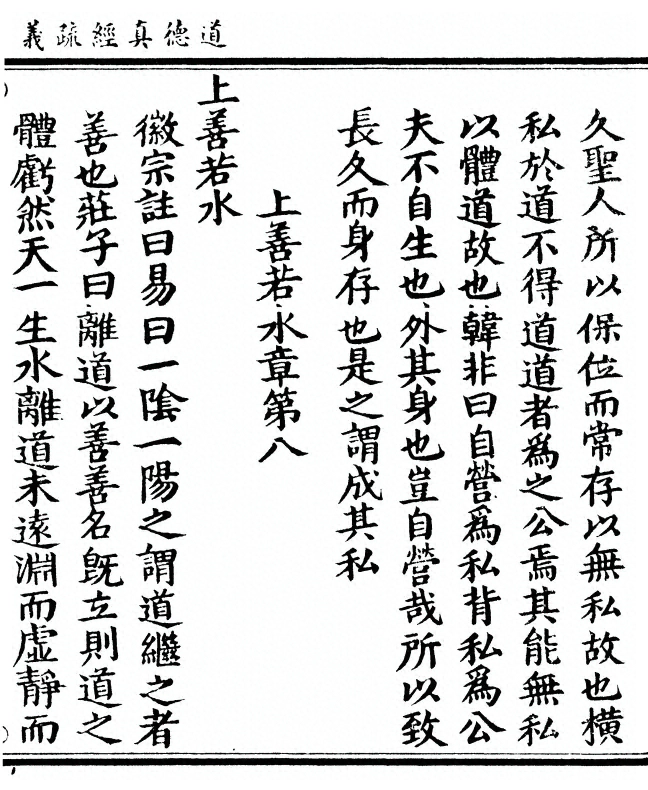 道德真經疏義
久聖人所以保位而常存以無私故也橫
私於道不得道道者為之公焉其能無私
以體道故也韓非曰自營為私背私為公
夫不自生也外其身也豈自營哉所以致
長久而身存也是之謂成其私
上善若水章第八
上善若水
徽宗註曰易曰一陰一陽之謂道繼之者
善也莊子曰離道以善善名既立則道之
體虧然天一生水離道未遠淵而虛靜而